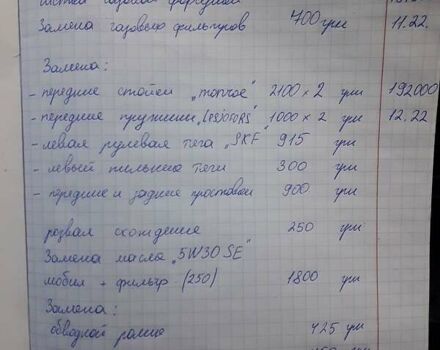 Замена газовых фильтров 700 грн 11.22.
Замена:
- передние стойки „monroe" 2100 х 2 грн 192000
- передние пружины „LESJOFORS" 1000 х 2 грн 12.22
- левая рулевая тяга „SKF" 915 грн
- левый пыльник тяги 300 грн
- передние и задние проставки 900 грн
розвал схождение 250 грн
Замена масла „5W30 SE"
мобил + фильтр (250) 1800 грн
Замена:
обводной ролик 425 грн